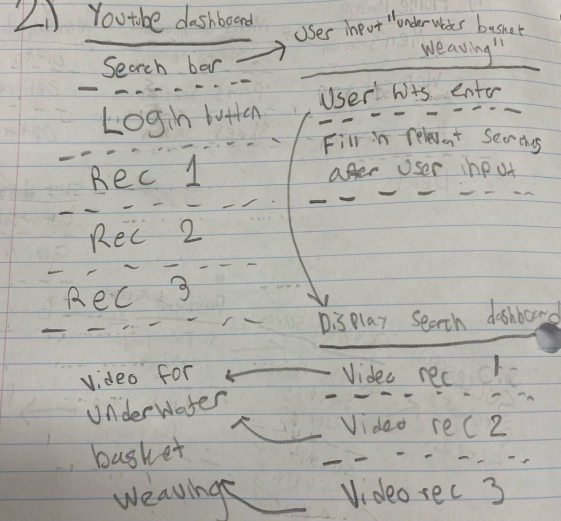 2.) Youtube dashboard
Search bar
Login button
Rec 1
Rec 2
Rec 3
User input "underwater basket
weaving"
User hits enter
Fill in relevant searches
after user input
Display search dashboard
Video rec 1
Video rec 2
Video rec 3
Video for
underwater
basket
weaving